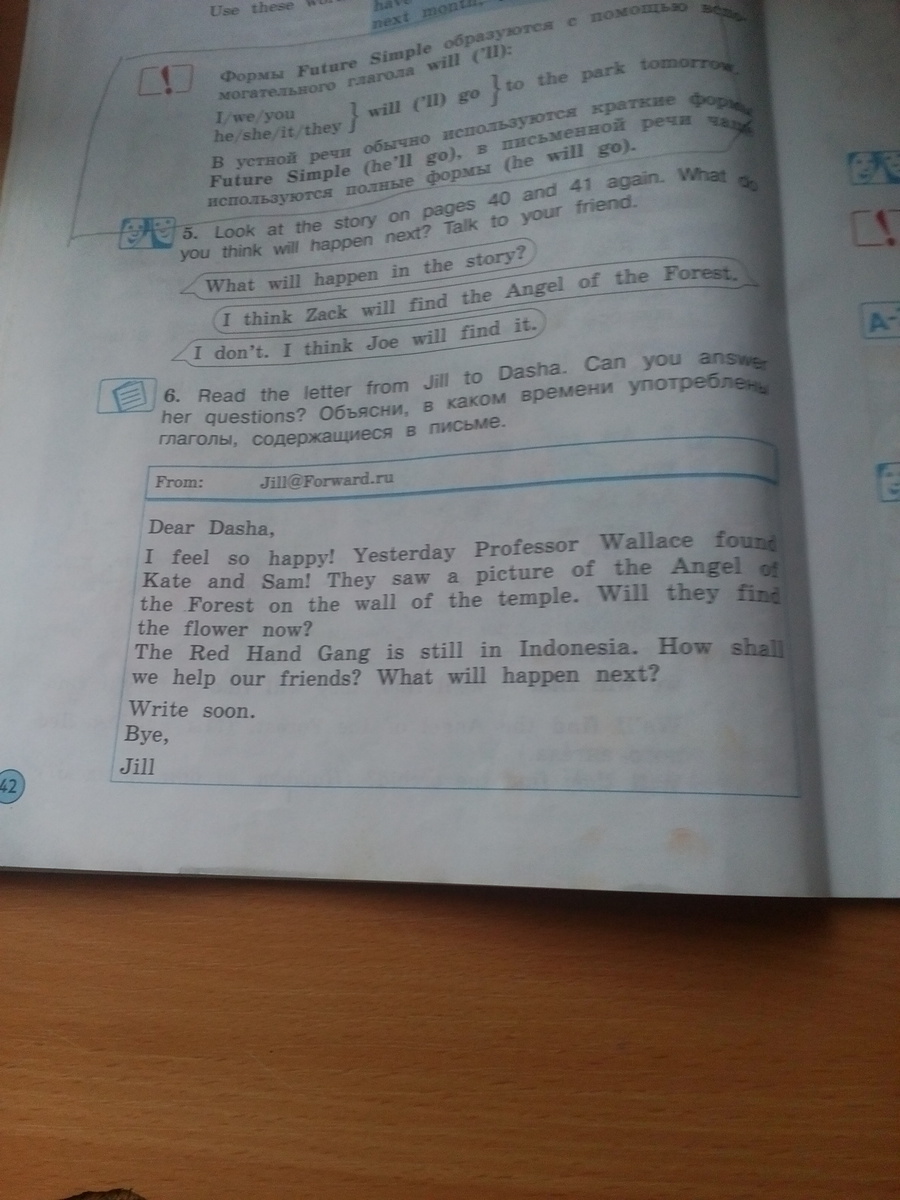 Use these
have
next month.
Формы Future Simple образуются с помощью вспо-
могательного глагола will ('ll):
I/we/you
he/she/it/they } will ('ll) go } to the park tomorrow.
В устной речи обычно используются краткие формы
Future Simple (he'll go), в письменной речи чаще
используются полные формы (he will go).
5. Look at the story on pages 40 and 41 again. What do
you think will happen next? Talk to your friend.
What will happen in the story?
I think Zack will find the Angel of the Forest.
I don't. I think Joe will find it.
6. Read the letter from Jill to Dasha. Can you answer
her questions? Объясни, в каком времени употреблены
глаголы, содержащиеся в письме.
From: Jill@Forward.ru
Dear Dasha,
I feel so happy! Yesterday Professor Wallace found
Kate and Sam! They saw a picture of the Angel of
the Forest on the wall of the temple. Will they find
the flower now?
The Red Hand Gang is still in Indonesia. How shall
we help our friends? What will happen next?
Write soon.
Bye,
Jill
42
A-